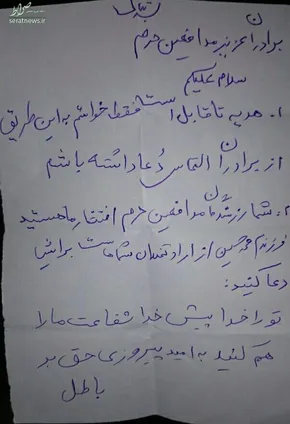 صراط
seratnews.ir
برادران عزیز مدافعین حرم
سلام علیکم
۱- هدیه ناقابل است فقط خواستم به این طریق
از برادران التماس دُعا داشته باشم
۲- شما رزمندگان مدافعین حرم افتخار ما هستید
فرزندم محمدحسین از ارادتمندان شماست برایش
دعا کنید:
تو را خدا پیش خدا شفاعت ما را
هم کنید به امید پیروزی حق بر
باطل